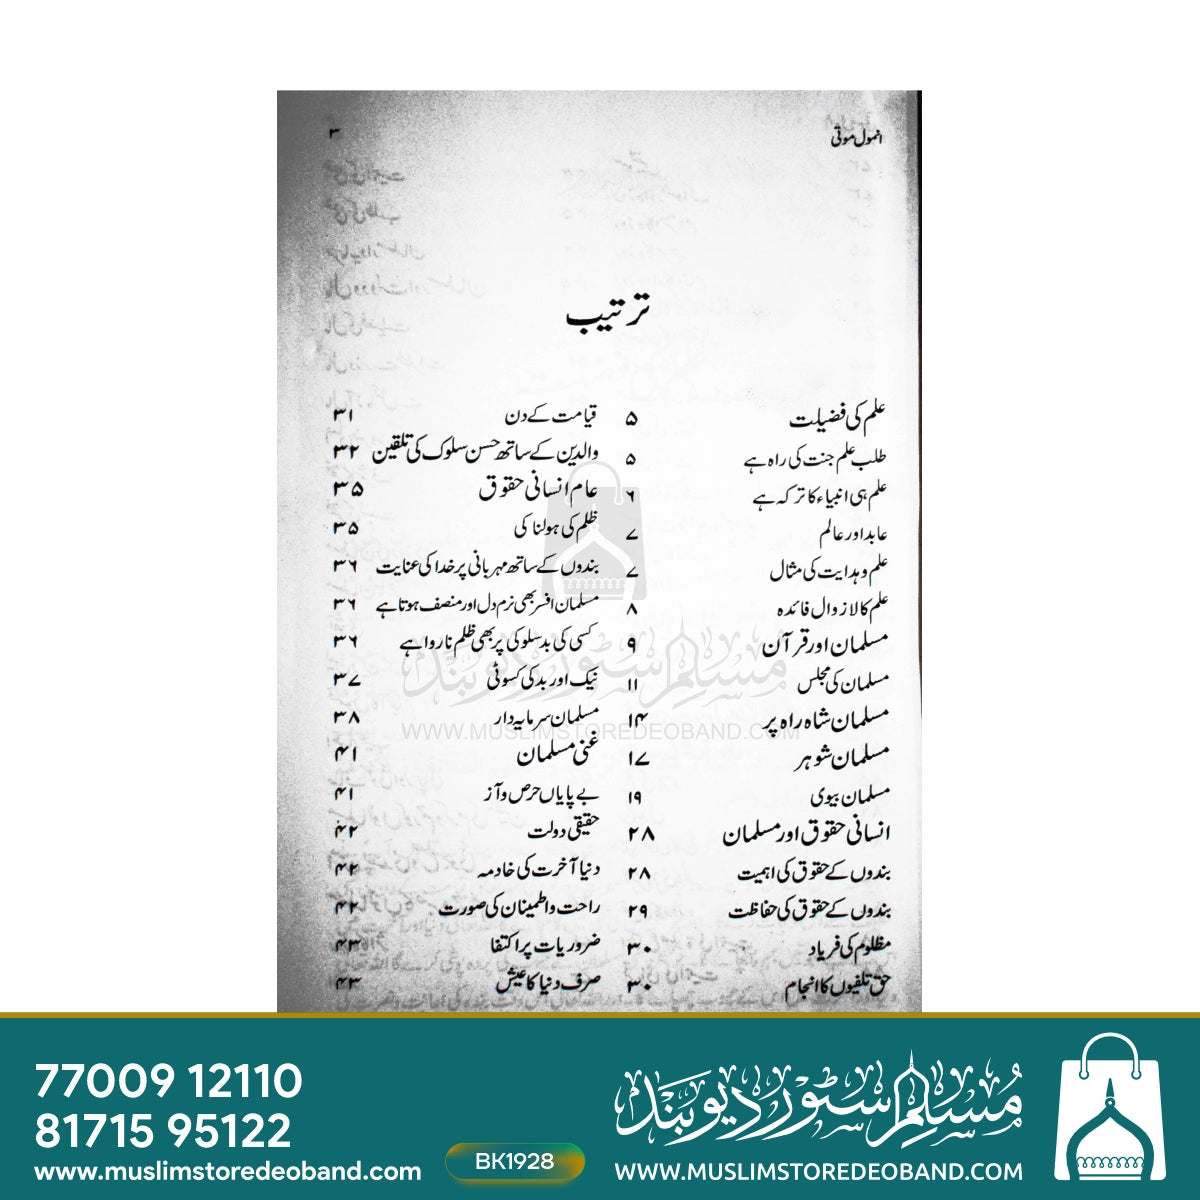 انمول موتی
۳
ترتیب
علم کی فضیلت ۵
طلب علم جنت کی راہ ہے ۵
علم ہی انبیاء کا ترکہ ہے ۶
عابد اور عالم ۷
علم و ہدایت کی مثال ۷
علم کا لازوال فائدہ ۸
مسلمان اور قرآن ۹
مسلمان کی مجلس ۱۱
مسلمان شاہ راہ پر ۱۴
مسلمان شوہر ۱۷
مسلمان بیوی ۱۹
انسانی حقوق اور مسلمان ۲۸
بندوں کے حقوق کی اہمیت ۲۸
بندوں کے حقوق کی حفاظت ۲۹
مظلوم کی فریاد ۳۰
حق تلفیوں کا انجام ۳۰
قیامت کے دن ۳۱
والدین کے ساتھ حسن سلوک کی تلقین ۳۲
عام انسانی حقوق ۳۵
ظلم کی ہولناکی ۳۵
بندوں کے ساتھ مہربانی پر خدا کی عنایت ۳۶
مسلمان افسر بھی نرم دل اور منصف ہوتا ہے ۳۶
کسی کی بدسلوکی پر بھی ظلم ناروا ہے ۳۶
نیک اور بد کی کسوٹی ۳۷
مسلمان سرمایہ دار ۳۸
غنی مسلمان ۴۱
بے پایاں حرص و آز ۴۱
حقیقی دولت ۴۲
دنیا آخرت کی خادمہ ۴۲
راحت و اطمینان کی صورت ۴۲
ضروریات پر اکتفا ۴۳
صرف دنیا کا عیش ۴۳
مسلم سٹور دیوبند
WWW.MUSLIMSTOREDEOBAND.COM
77009 12110
81715 95122
www.muslimstoredeoband.com
BK1928
مُسلم سٹور دیوبند
WWW.MUSLIMSTOREDEOBAND.COM